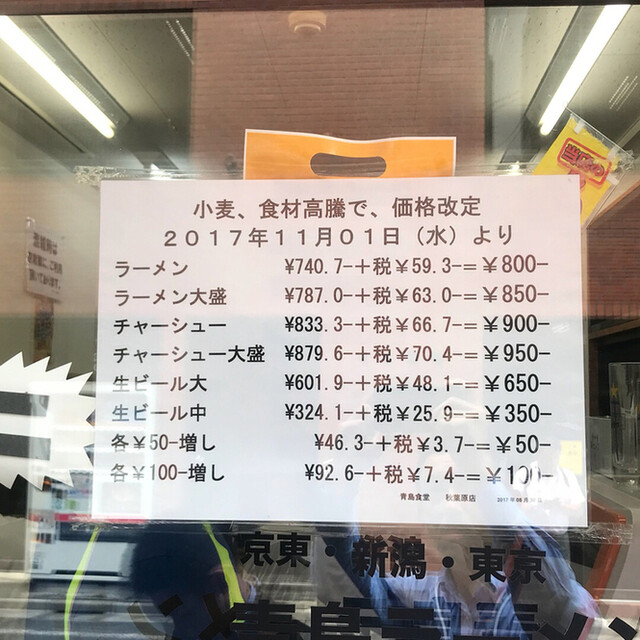 小麦、食材高騰で、価格改定
２０１７年１１月０１日（水）より
ラーメン ¥740.7-＋税¥59.3-＝¥800-
ラーメン大盛 ¥787.0-＋税¥63.0-＝¥850-
チャーシュー ¥833.3-＋税¥66.7-＝¥900-
チャーシュー大盛 ¥879.6-＋税¥70.4-＝¥950-
生ビール大 ¥601.9-＋税¥48.1-＝¥650-
生ビール中 ¥324.1-＋税¥25.9-＝¥350-
各¥50-増し ¥46.3-＋税¥3.7-＝¥50-
各¥100-増し ¥92.6-＋税¥7.4-＝¥100-
青島食堂 秋葉原店
京東・新潟・東京